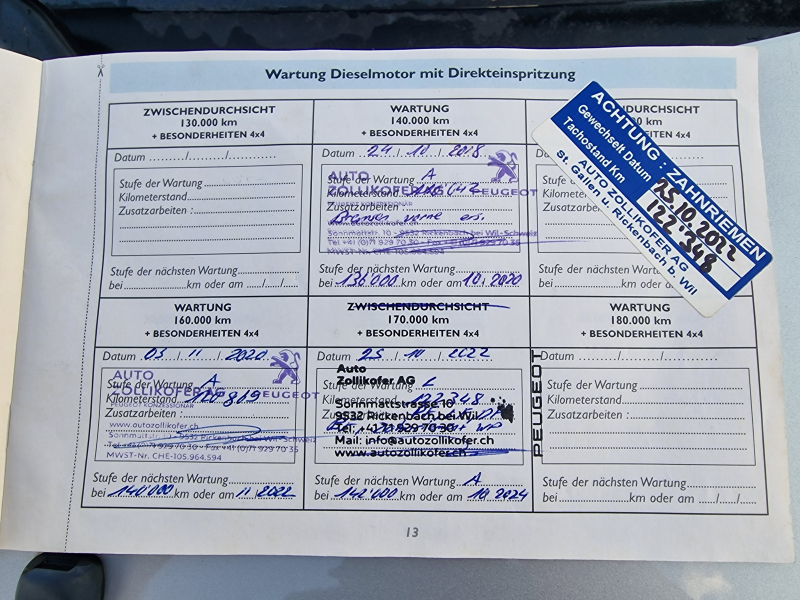 Wartung Dieselmotor mit Direkteinspritzung
ZWISCHENDURCHSICHT
130.000 km
+ BESONDERHEITEN 4x4
Datum ........./........./............
Stufe der Wartung
Kilometerstand
Zusatzarbeiten :
Stufe der nächsten Wartung
bei km oder am ...../...../.....
WARTUNG
140.000 km
+ BESONDERHEITEN 4x4
Datum 24 / 10 / 2018
Stufe der Wartung A
AUTO
ZOLLIKOFER AG
PEUGEOT
Kilometerstand
PEUGEOT KONZESSIONÄR
Zusatzarbeiten :
Bremsen vorne ers.
Sonnmattstr. 10 - 9532 Rickenbach bei Wil-Schweiz
Tel +41 (0)71 929 70 30 - Fax +41 (0)71 929 70 35
MWST-Nr. CHE-105.964.594
Stufe der nächsten Wartung
bei 136'000 km oder am 10.2020
DURCHSICHT
km
+ BESONDERHEITEN 4x4
Datum
Stufe der
Kilometerst
Zusatz
Stufe der nächsten
bei km oder am
ACHTUNG : ZAHNRIEMEN
Gewechselt Datum 25.10.2022
Tachostand Km 122'348
AUTO ZOLLIKOFER AG
St. Gallen u. Rickenbach b. Wil
WARTUNG
160.000 km
+ BESONDERHEITEN 4x4
Datum 03 / 11 / 2020
AUTO
ZOLLIKOFER AG
PEUGEOT
Stufe der Wartung A
Kilometerstand 120'819
PEUGEOT KONZESSIONÄR
Zusatzarbeiten :
www.autozollikofer.ch
Sonnmattstr. 10 - 9532 Rickenbach bei Wil-Schweiz
Tel +41 (0)71 929 70 30 - Fax +41 (0)71 929 70 35
MWST-Nr. CHE-105.964.594
Stufe der nächsten Wartung
bei 140'000 km oder am 11.2022
ZWISCHENDURCHSICHT
170.000 km
+ BESONDERHEITEN 4x4
Datum 25 / 10 / 2022
Auto
Zollikofer AG
Stufe der Wartung
Kilometerstand 122.348
Sonnmattstrasse 10
Zusatzarbeiten :
9532 Rickenbach bei Wil
Tel. +41 71 929 70 30
Mail: info@autozollikofer.ch
www.autozollikofer.ch
PEUGEOT
Stufe der nächsten Wartung A
bei 142'000 km oder am 10.2024
WARTUNG
180.000 km
+ BESONDERHEITEN 4x4
Datum ........./........./............
Stufe der Wartung
Kilometerstand
Zusatzarbeiten :
Stufe der nächsten Wartung
bei km oder am ...../...../.....
13